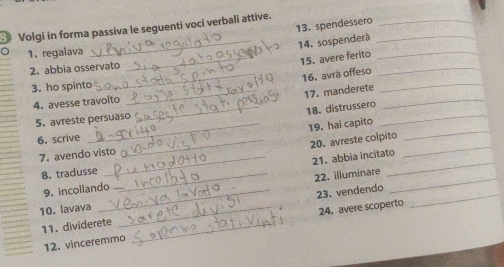 8 Volgi in forma passiva le seguenti voci verbali attive.
1. regalava veniva regalato
2. abbia osservato sia stato osservato
3. ho spinto sono stato spinto
4. avesse travolto fosse stato travolto
5. avreste persuaso sareste stati persuasi
6. scrive è scritto
7. avendo visto
8. tradusse fu tradotto
9. incollando incollato
10. lavava veniva lavato
11. dividerete sarete divisi
12. vinceremmo stati vinti
13. spendessero
14. sospenderà
15. avere ferito
16. avrà offeso
17. manderete
18. distrussero
19. hai capito
20. avreste colpito
21. abbia incitato
22. illuminare
23. vendendo
24. avere scoperto